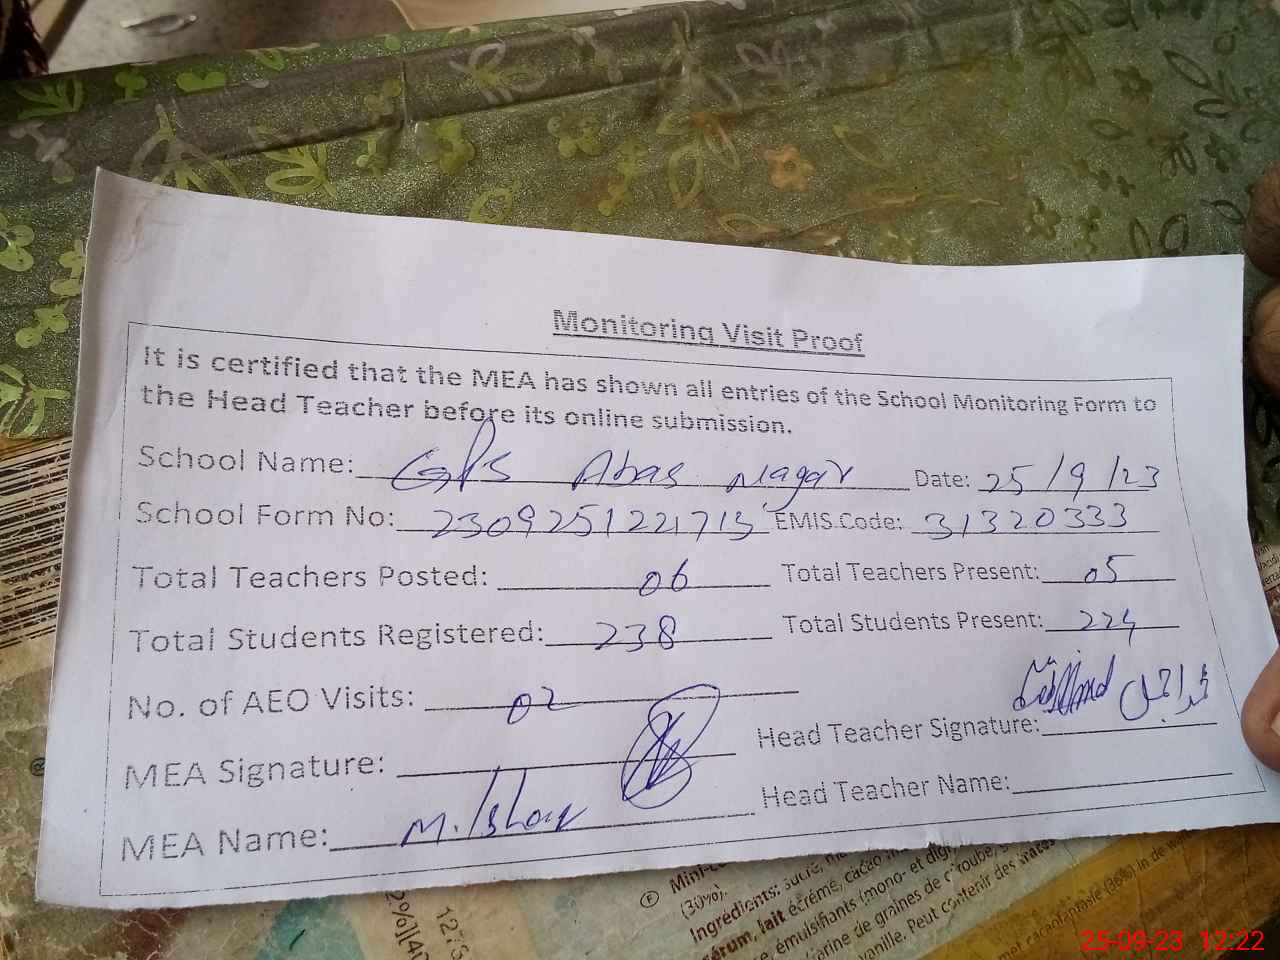 Monitoring Visit Proof
It is certified that the MEA has shown all entries of the School Monitoring Form to
the Head Teacher before its online submission.
School Name: GPS Abas Nagar Date: 25/9/23
School Form No: 2309251221715 EMIS Code: 31320333
Total Teachers Posted: 06 Total Teachers Present: 05
Total Students Registered: 238 Total Students Present: 224
No. of AEO Visits: 02
MEA Signature: Head Teacher Signature:
MEA Name: M. Ishaq Head Teacher Name:
(30%).
Ingrédients: sucre,
lait écrémé, cacao
émulsifiants (mono- et
farine de graines de caroube,
vanille. Peut contenir des traces
25-09-23 12:22